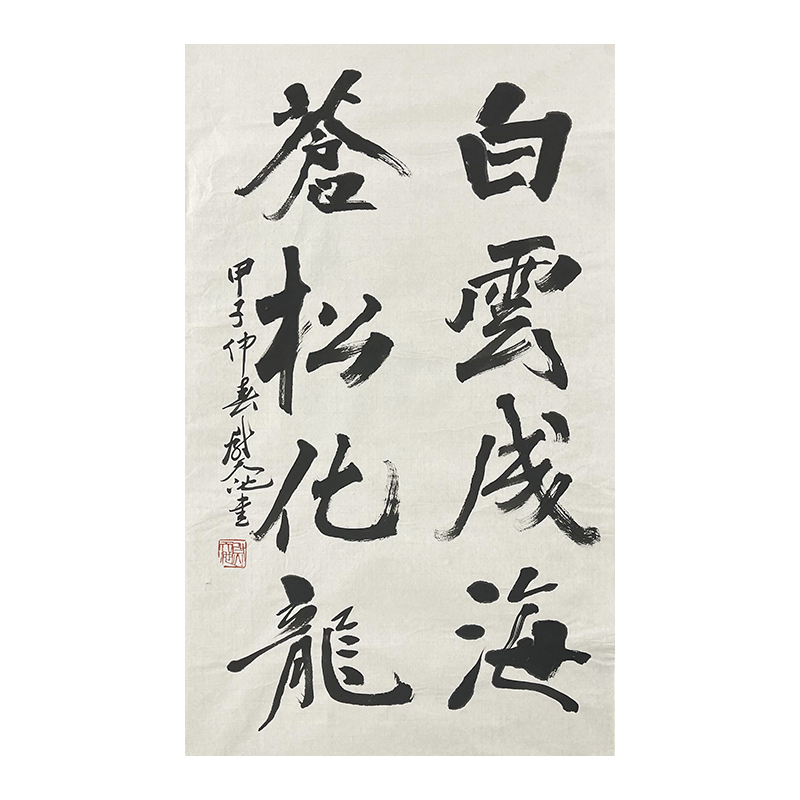 白雲成海
蒼松化龍
甲子仲春尉天池書